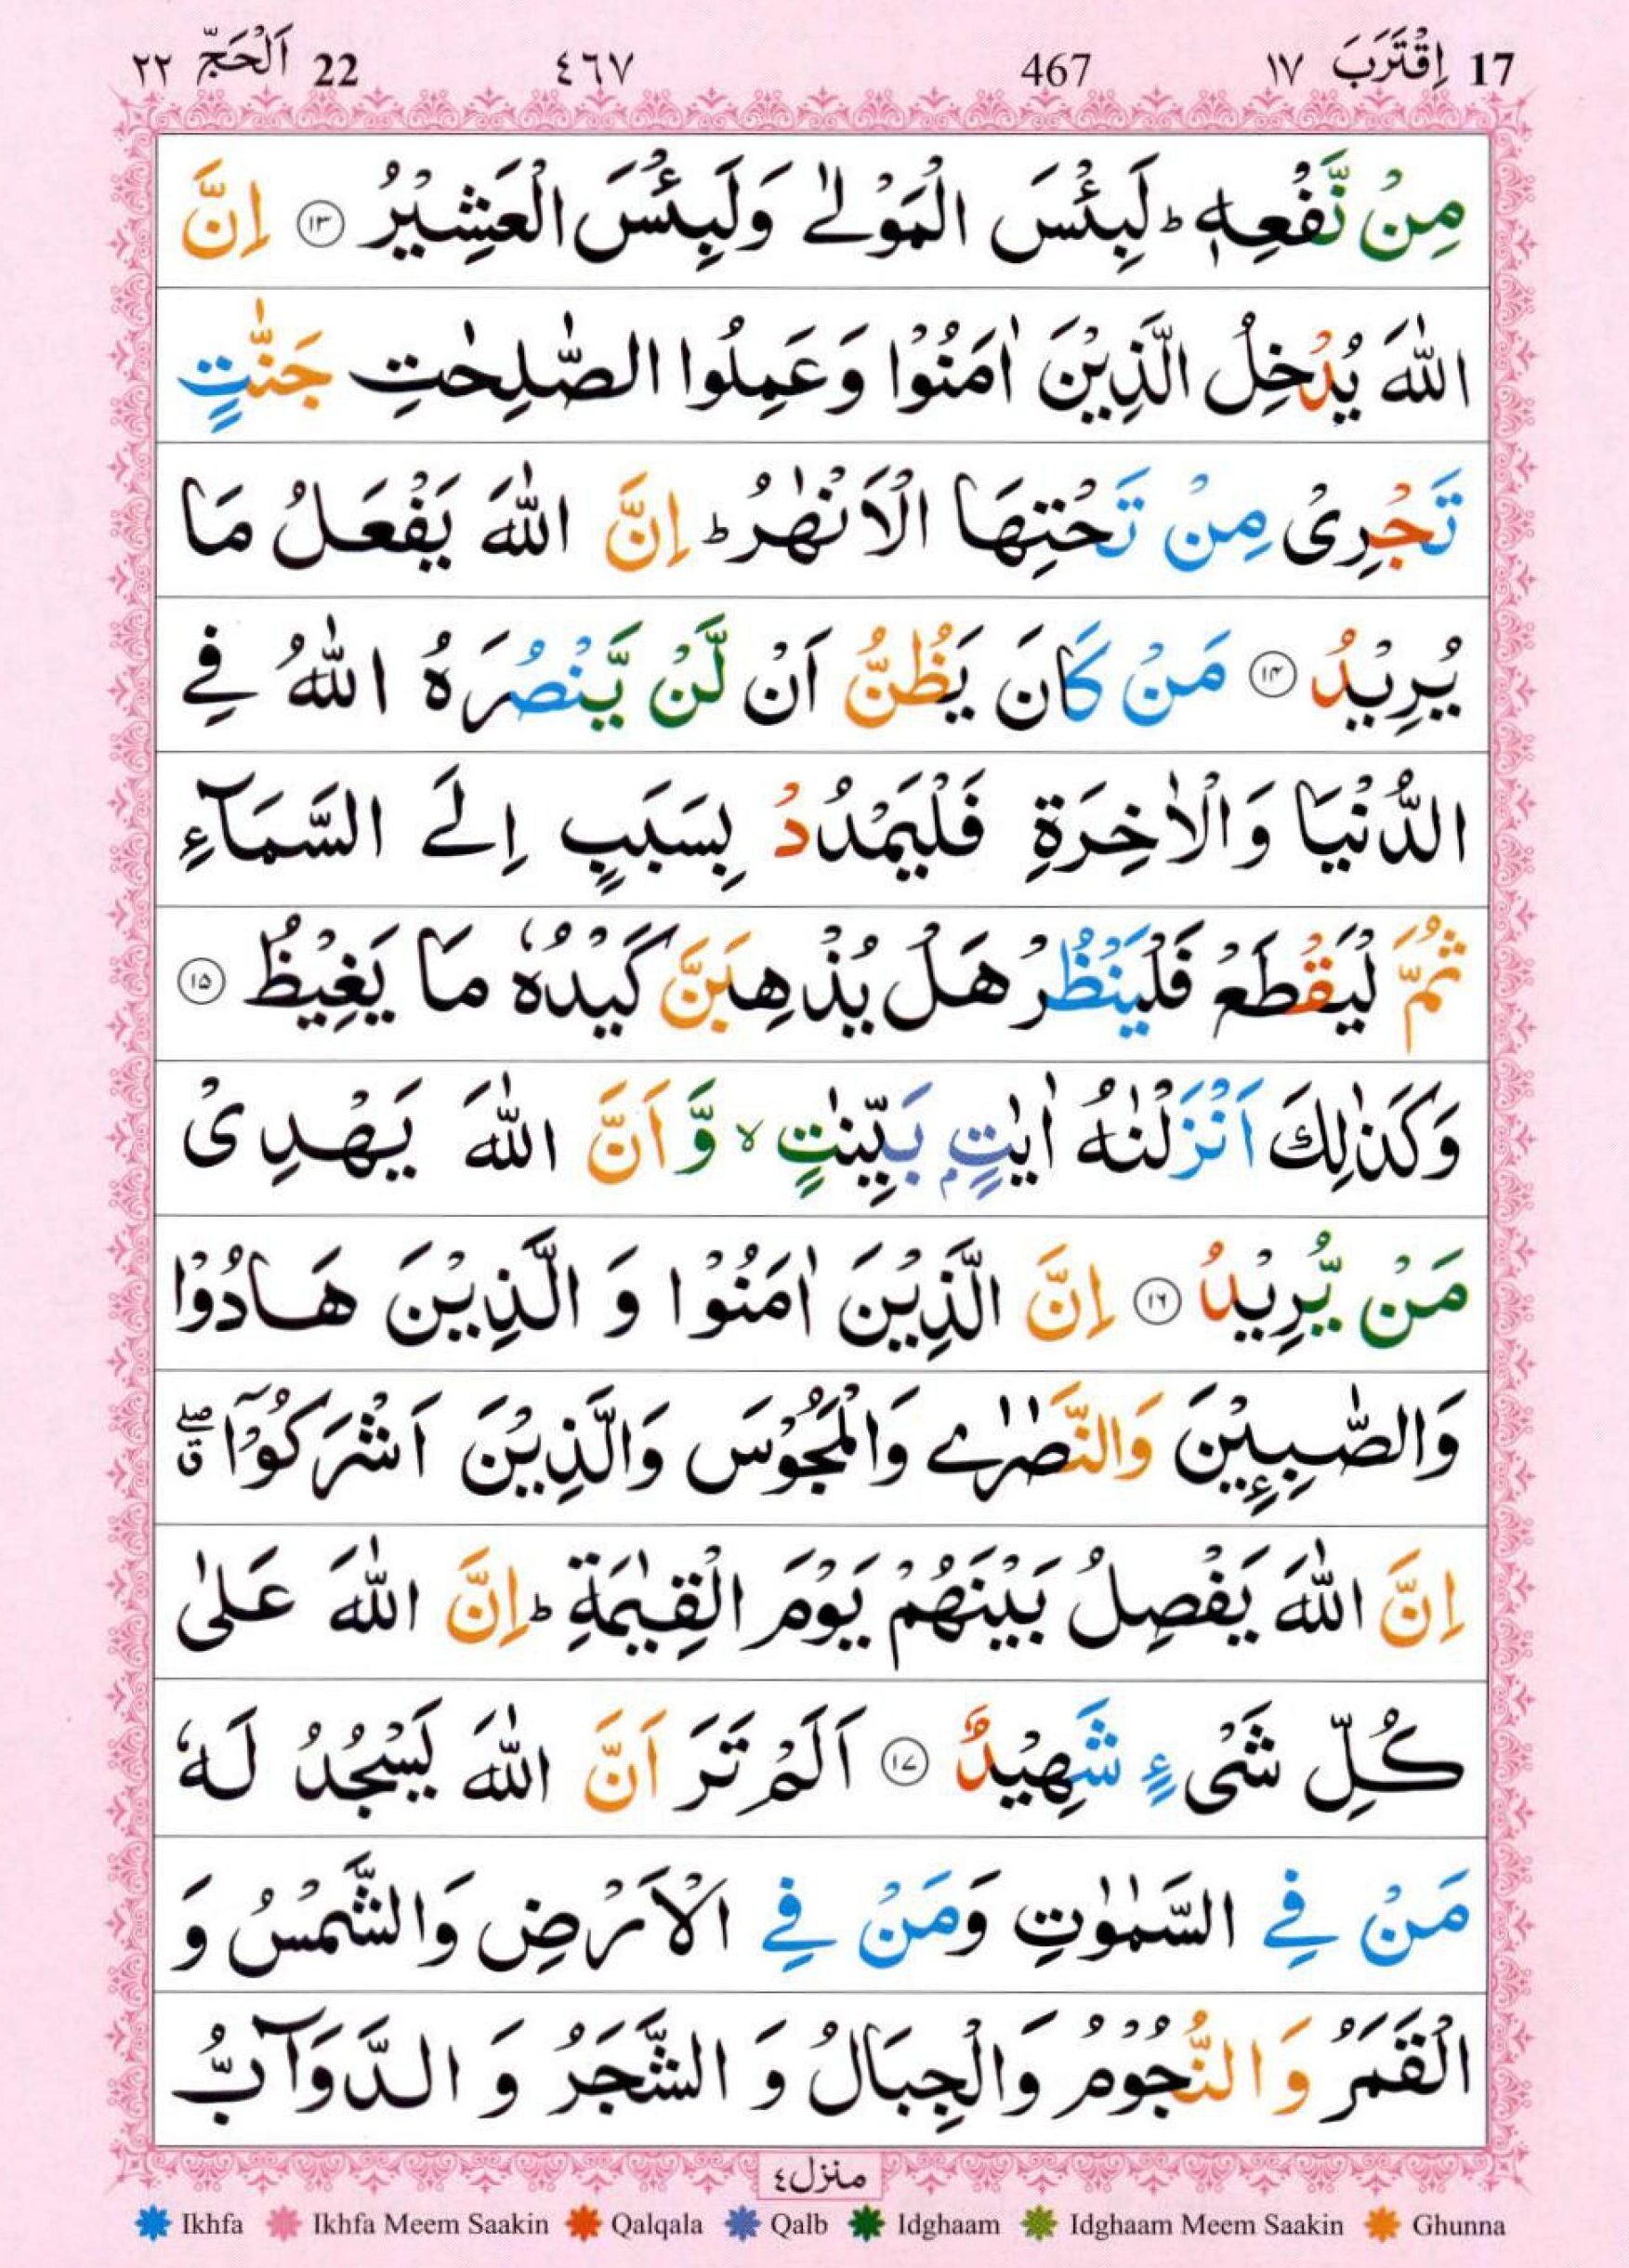 17 اِقْتَرَبَ ١٧ 467 ٤٦٧ 22 اَلْحَجّ ٢٢
مِنْ نَّفْعِهٖ ؕ لَبِئْسَ الْمَوْلٰى وَلَبِئْسَ الْعَشِيْرُ ۝١٣ اِنَّ
اللّٰهَ يُدْخِلُ الَّذِيْنَ اٰمَنُوْا وَعَمِلُوا الصّٰلِحٰتِ جَنّٰتٍ
تَجْرِىْ مِنْ تَحْتِهَا الْاَنْهٰرُ ؕ اِنَّ اللّٰهَ يَفْعَلُ مَا
يُرِيْدُ ۝١٤ مَنْ كَانَ يَظُنُّ اَنْ لَّنْ يَّنْصُرَهُ اللّٰهُ فِى
الدُّنْيَا وَالْاٰخِرَةِ فَلْيَمْدُدْ بِسَبَبٍ اِلَى السَّمَآءِ
ثُمَّ لْيَقْطَعْ فَلْيَنْظُرْ هَلْ يُذْهِبَنَّ كَيْدُهٗ مَا يَغِيْظُ ۝١٥
وَكَذٰلِكَ اَنْزَلْنٰهُ اٰيٰتٍۭ بَيِّنٰتٍ ۙ وَّاَنَّ اللّٰهَ يَهْدِىْ
مَنْ يُّرِيْدُ ۝١٦ اِنَّ الَّذِيْنَ اٰمَنُوْا وَ الَّذِيْنَ هَادُوْا
وَالصّٰبِـِٕيْنَ وَالنَّصٰرٰى وَالْمَجُوْسَ وَالَّذِيْنَ اَشْرَكُوْۤا ۖق
اِنَّ اللّٰهَ يَفْصِلُ بَيْنَهُمْ يَوْمَ الْقِيٰمَةِ ؕ اِنَّ اللّٰهَ عَلٰى
كُلِّ شَىْءٍ شَهِيْدٌ ۝١٧ اَلَمْ تَرَ اَنَّ اللّٰهَ يَسْجُدُ لَهٗ
مَنْ فِى السَّمٰوٰتِ وَمَنْ فِى الْاَرْضِ وَالشَّمْسُ وَ
الْقَمَرُ وَالنُّجُوْمُ وَالْجِبَالُ وَ الشَّجَرُ وَ الدَّوَآبُّ
منزل٤
Ikhfa Ikhfa Meem Saakin Qalqala Qalb Idghaam Idghaam Meem Saakin Ghunna